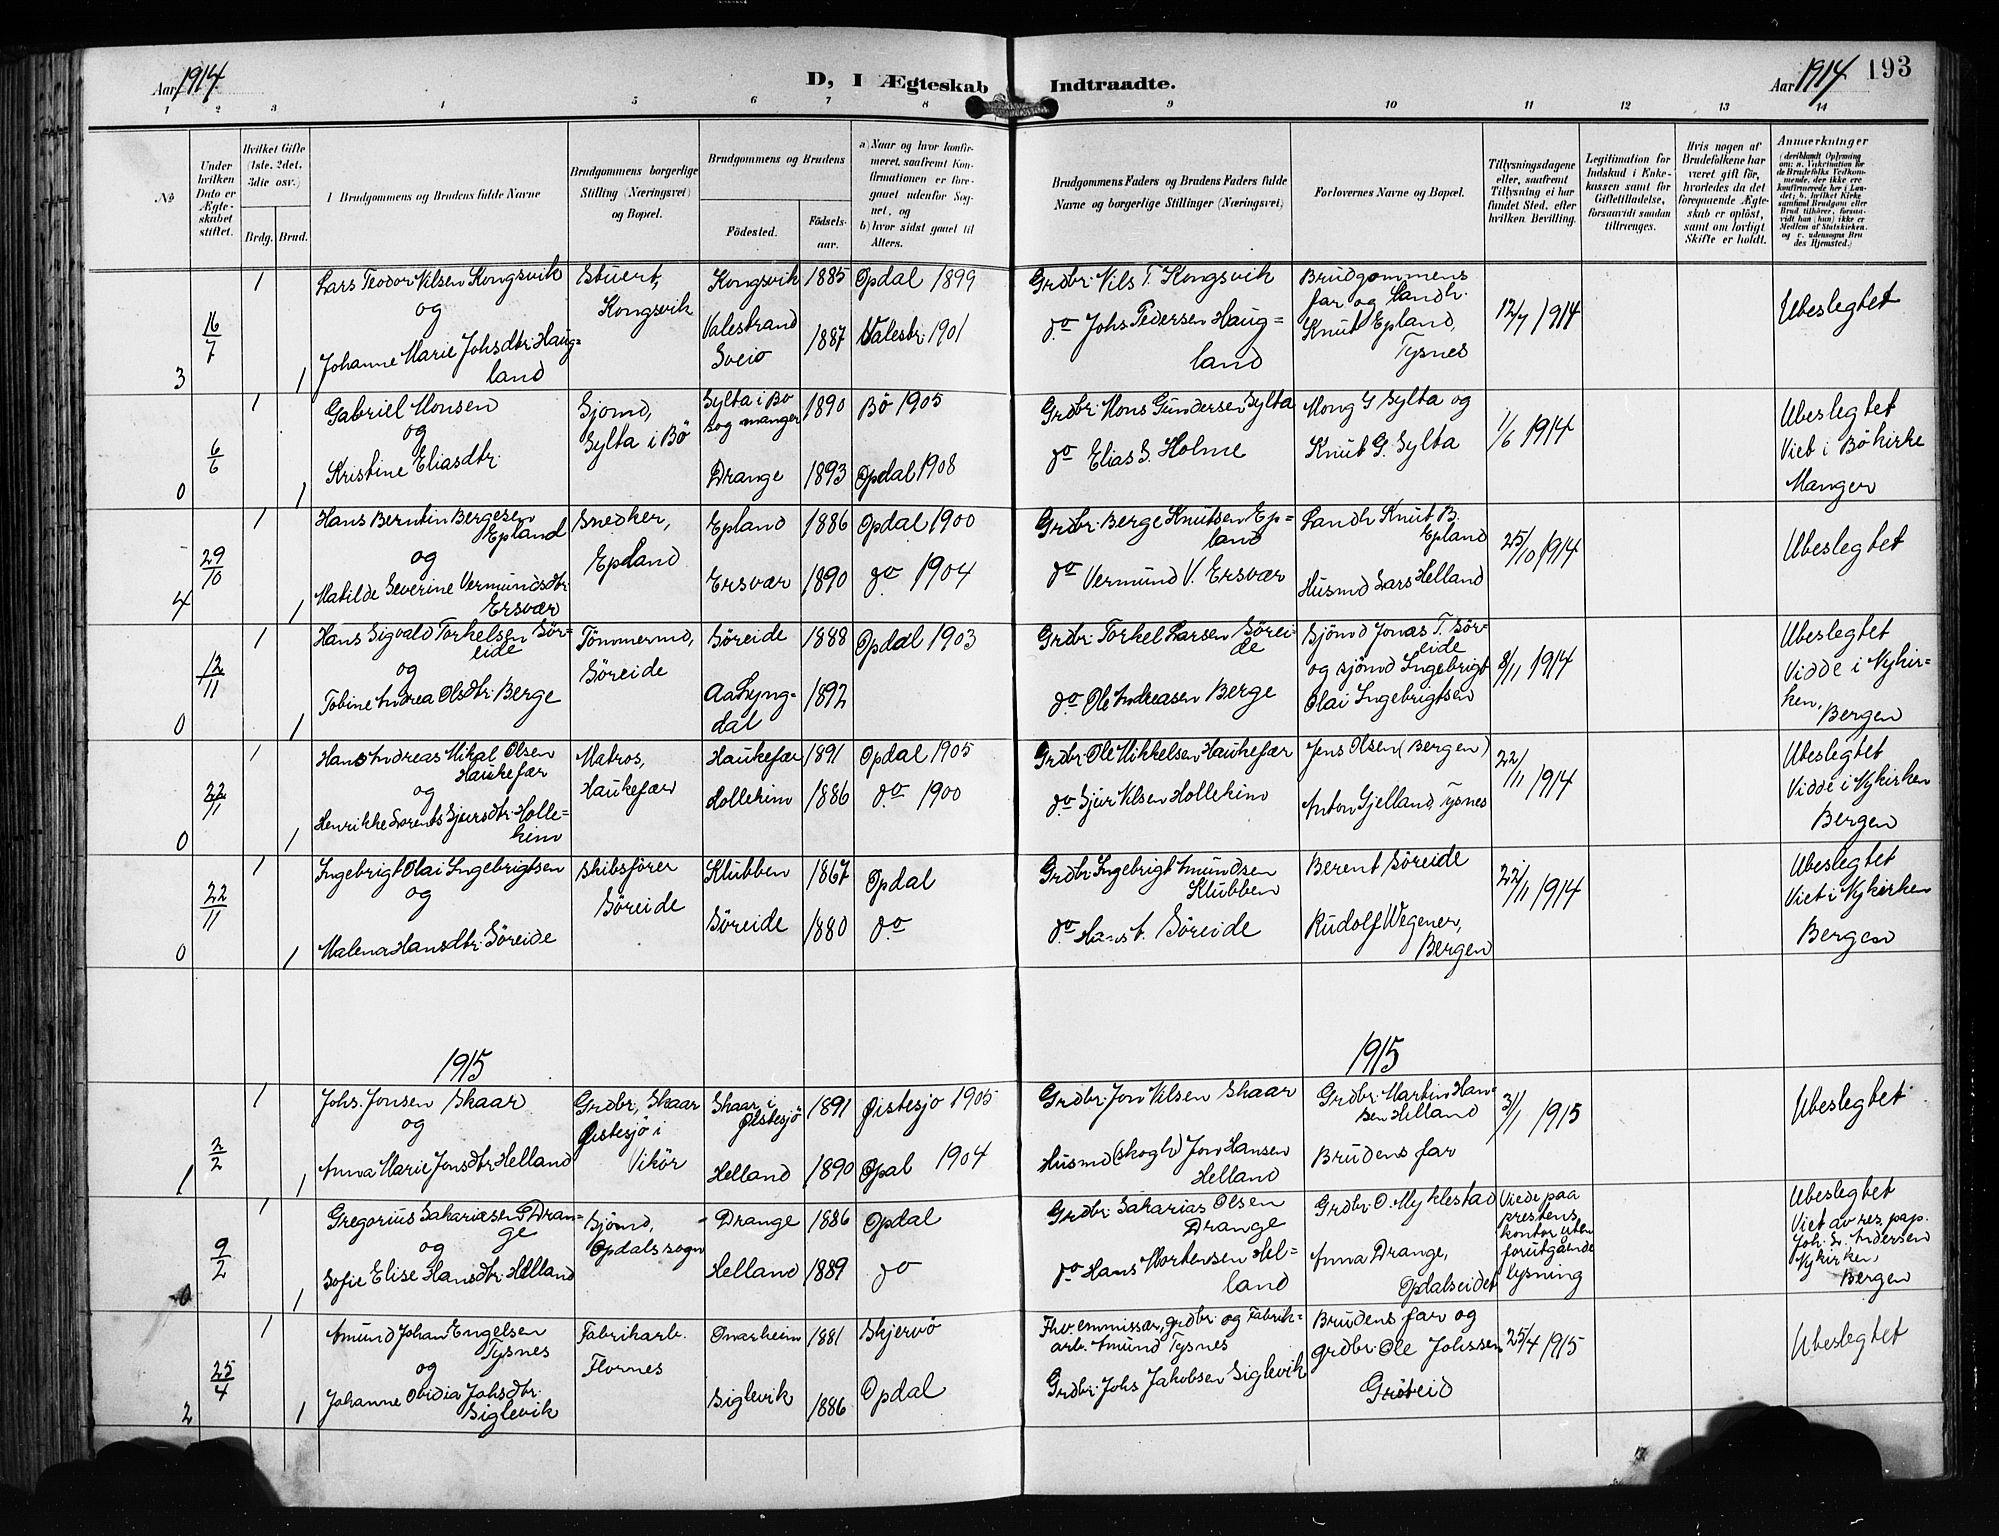 Aar 1914
D, I Ægteskab Indtraadte.
Aar 1914 193
1 2 3 4 5 6 7 8 9 10 11 12 13 14
No
Under hvilken Dato er Ægteskabet stiftet.
Hvilket Gifte (1ste, 2det, 3die osv.)
Brdg. Brud.
1 Brudgommens og Brudens fulde Navne
Brudgommens borgerlige Stilling (Næringsvei) og Bopæl.
Brudgommens og Brudens
Födested.
Födselsaar.
a) Naar og hvor konfirmeret, saafremt Konfirmationen er foregaaet udenför Sognet, og
b) hvor sidst gaaet til Alters.
Brudgommens Faders og Brudens Faders fulde Navne og borgerlige Stillinger (Næringsvei)
Forlovernes Navne og Bopæl.
Tillysningsdagene eller, saafremt Tillysning ei har fundet Sted, efter hvilken Bevilling.
Legitimation for Indskud i Enkekassen samt for Giftetilladelse, forsaavidt saadan tiltrænges.
Hvis nogen af Brudefolkene har været gift för, hvorledes da det foregaaende Ægteskab er oplöst, samt om lovligt Skifte er holdt.
Anmærkninger
3 16/7 1 1
Lars Teodor Nilsen Kongsvik
og
Johanne Marie Johsdtr. Haugland
Stuert,
Kongsvik
Kongsvik 1885 Opdal 1899
Valestrand
Sveio 1887 Valestr. 1901
Grdbr. Nils T. Kongsvik
do Johs Pedersen Haugland
Brudgommens
far og Landh.
Knut Epland,
Tysnes
12/7 1914
Ubeslegtet
0 6/6 1 1
Gabriel Monsen
og
Kristine Eliasdtr.
Sjömd,
Sylta i Bö
Sylta i Bö
sog manger 1890 Bö 1905
Drange 1893 Opdal 1908
Grdbr. Mons Gundersen Sylta
do Elias S. Holme
Mong G Sylta og
Knut G. Sylta
1/6 1914
Ubeslegtet
Viet i Bö kirke
Manger
4 29/10 1 1
Hans Berntin Bergesen
Epland
og
Matilde Severine Vermundsdtr.
Ersvær
Snedker,
Epland
Epland 1886 Opdal 1900
Ersvær 1890 do 1904
Grdbr. Berge Knutsen Epland
do Vermund V. Ersvær
Landh Knut B.
Epland
Husmd Lars Helland
25/10 1914
Ubeslegtet
0 12/11 1 1
Hans Sigvald Torkelsen Söreide
og
Tobine Andrea Olsdtr. Berge
Tömmermd,
Söreide
Söreide 1888 Opdal 1903
Aa Lyngdal 1892
Grdbr. Torkel Larsen Söreide
do Ole Andreasen Berge
Sjömd Jonas T. Söreide
og sjömd Ingebrigt
Olai Ingebrigtsen
8/11 1914
Ubeslegtet
Vidde i Nykirken,
Bergen
0 22/11 1 1
Hans Andreas Mikal Olsen
Haukefær
og
Henrikke Lorents Sjursdtr. Hollekim
Matros,
Haukefær
Haukefær 1891 Opdal 1905
Hollekim 1886 do 1900
Grdbr. Ole Mikkelsen Haukefær
do Sjur Nilsen Hollekim
Jens Olsen (Bergen)
Anton Gjelland, Tysnes
22/11 1914
Ubeslegtet
Vidde i Nykirken
Bergen
0 22/11 1 1
Ingebrigt Olai Ingebrigtsen
og
Malena Hansdtr. Söreide
Skibsförer
Söreide
Klubben 1867 Opdal
Söreide 1880 do
Grdbr. Ingebrigt Amundsen
Klubben
do Hans t. Söreide
Berent Söreide
Rudolf Wegener,
Bergen
22/11 1914
Ubeslegtet
Viet i Nykirken
Bergen
1915
1915
1 2/2 1 1
Johs. Jonsen Skaar
og
Anna Marie Jonsdtr. Helland
Grdbr, Skaar
Östesjö i
Vikör
Skaar i
Östesjö 1891 Östesjö 1905
Helland 1890 Opal 1904
Grdbr. Jon Nilsen Skaar
Husmd (skogh) Jon Hansen
Helland
Grdbr. Martin Hansen Helland
Brudens far
31/1 1915
Ubeslegtet
0 9/2 1 1
Gregorius Sakariasen Drange
og
Sofie Elise Hansdtr. Helland
Sjömd,
Opdals sogn
Drange 1886 Opdal
Helland 1889 do
Grdbr. Sakarias Olsen
Drange
do Hans Mortensen Helland
Grdbr. O. Myklestad
Anna Drange,
Opdalseidet
Viede paa
prestens
kontor uten
forutgående
lysning
Ubeslegtet
Viet av res. pap.
Joh. L. Andersen
Nykirken
Bergen
2 25/4 1 1
Amund Johan Engelsen
Tysnes
og
Johanne Obidia Johsdtr.
Siglevik
Fabrikarb.
Flornes
Onarheim 1881 Skjervö
Siglevik 1886 Opdal
Fhv. emmissær, grdbr. og Fabrikarb. Amund Tysnes
Grdbr. Johs Jakobsen Siglevik
Brudens far og
grdbr. Ole Johssen
Gröteid
25/4 1915
Ubeslegtet